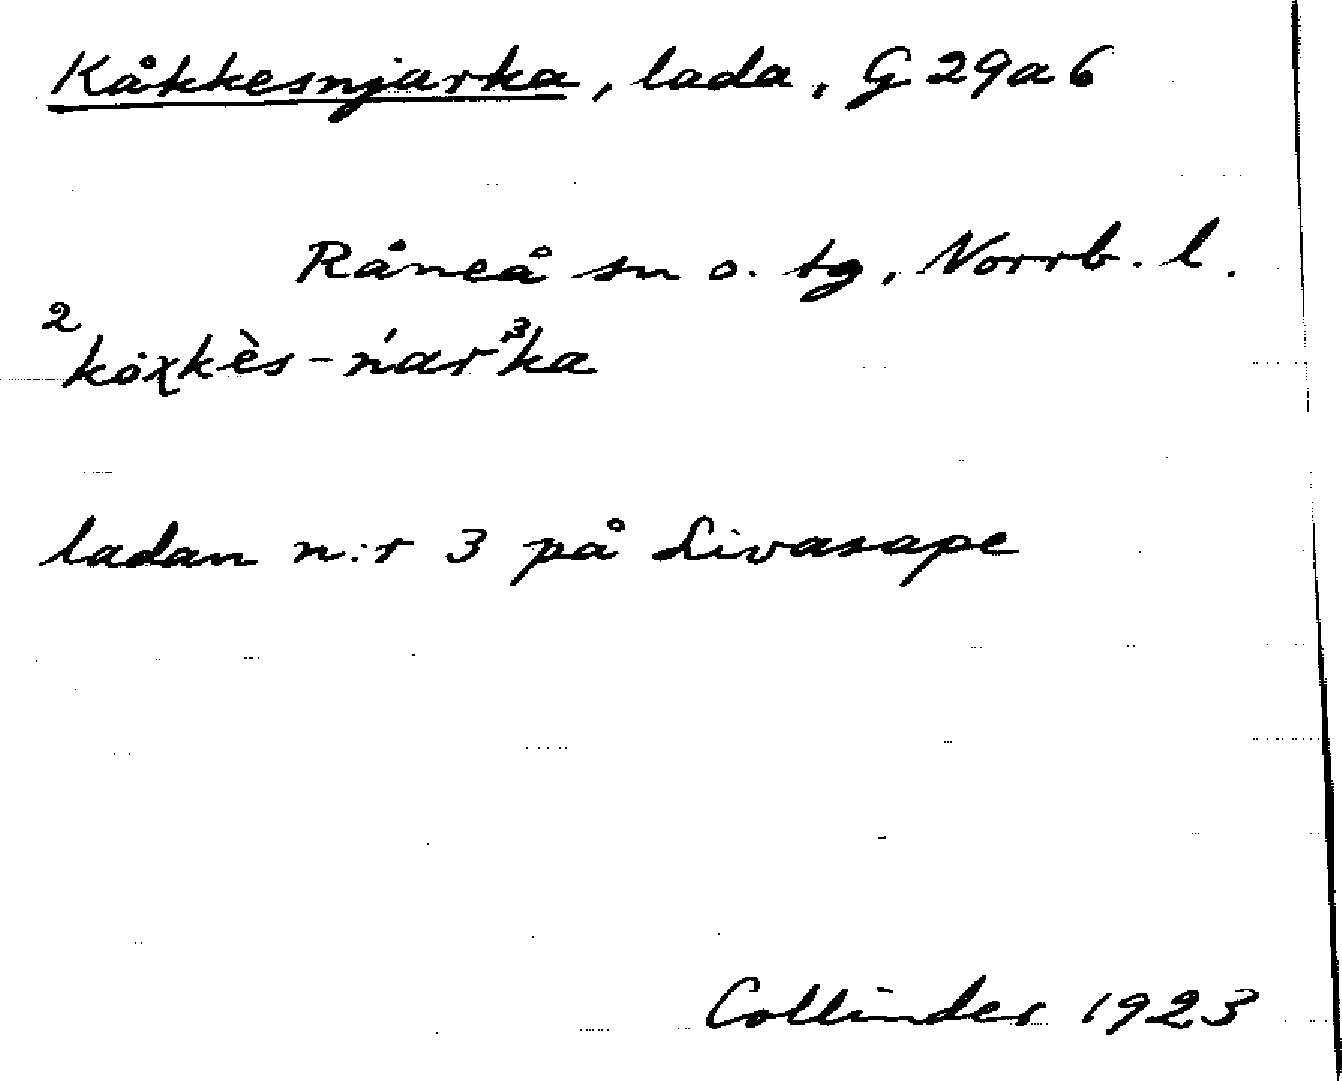 Kåkkesnjarka, lada, G 29a6
Råneå sn o. tg, Norrb. l.
²kòχkès-ńar³ka
ladan n:r 3 på Livasape
Collinder 1923